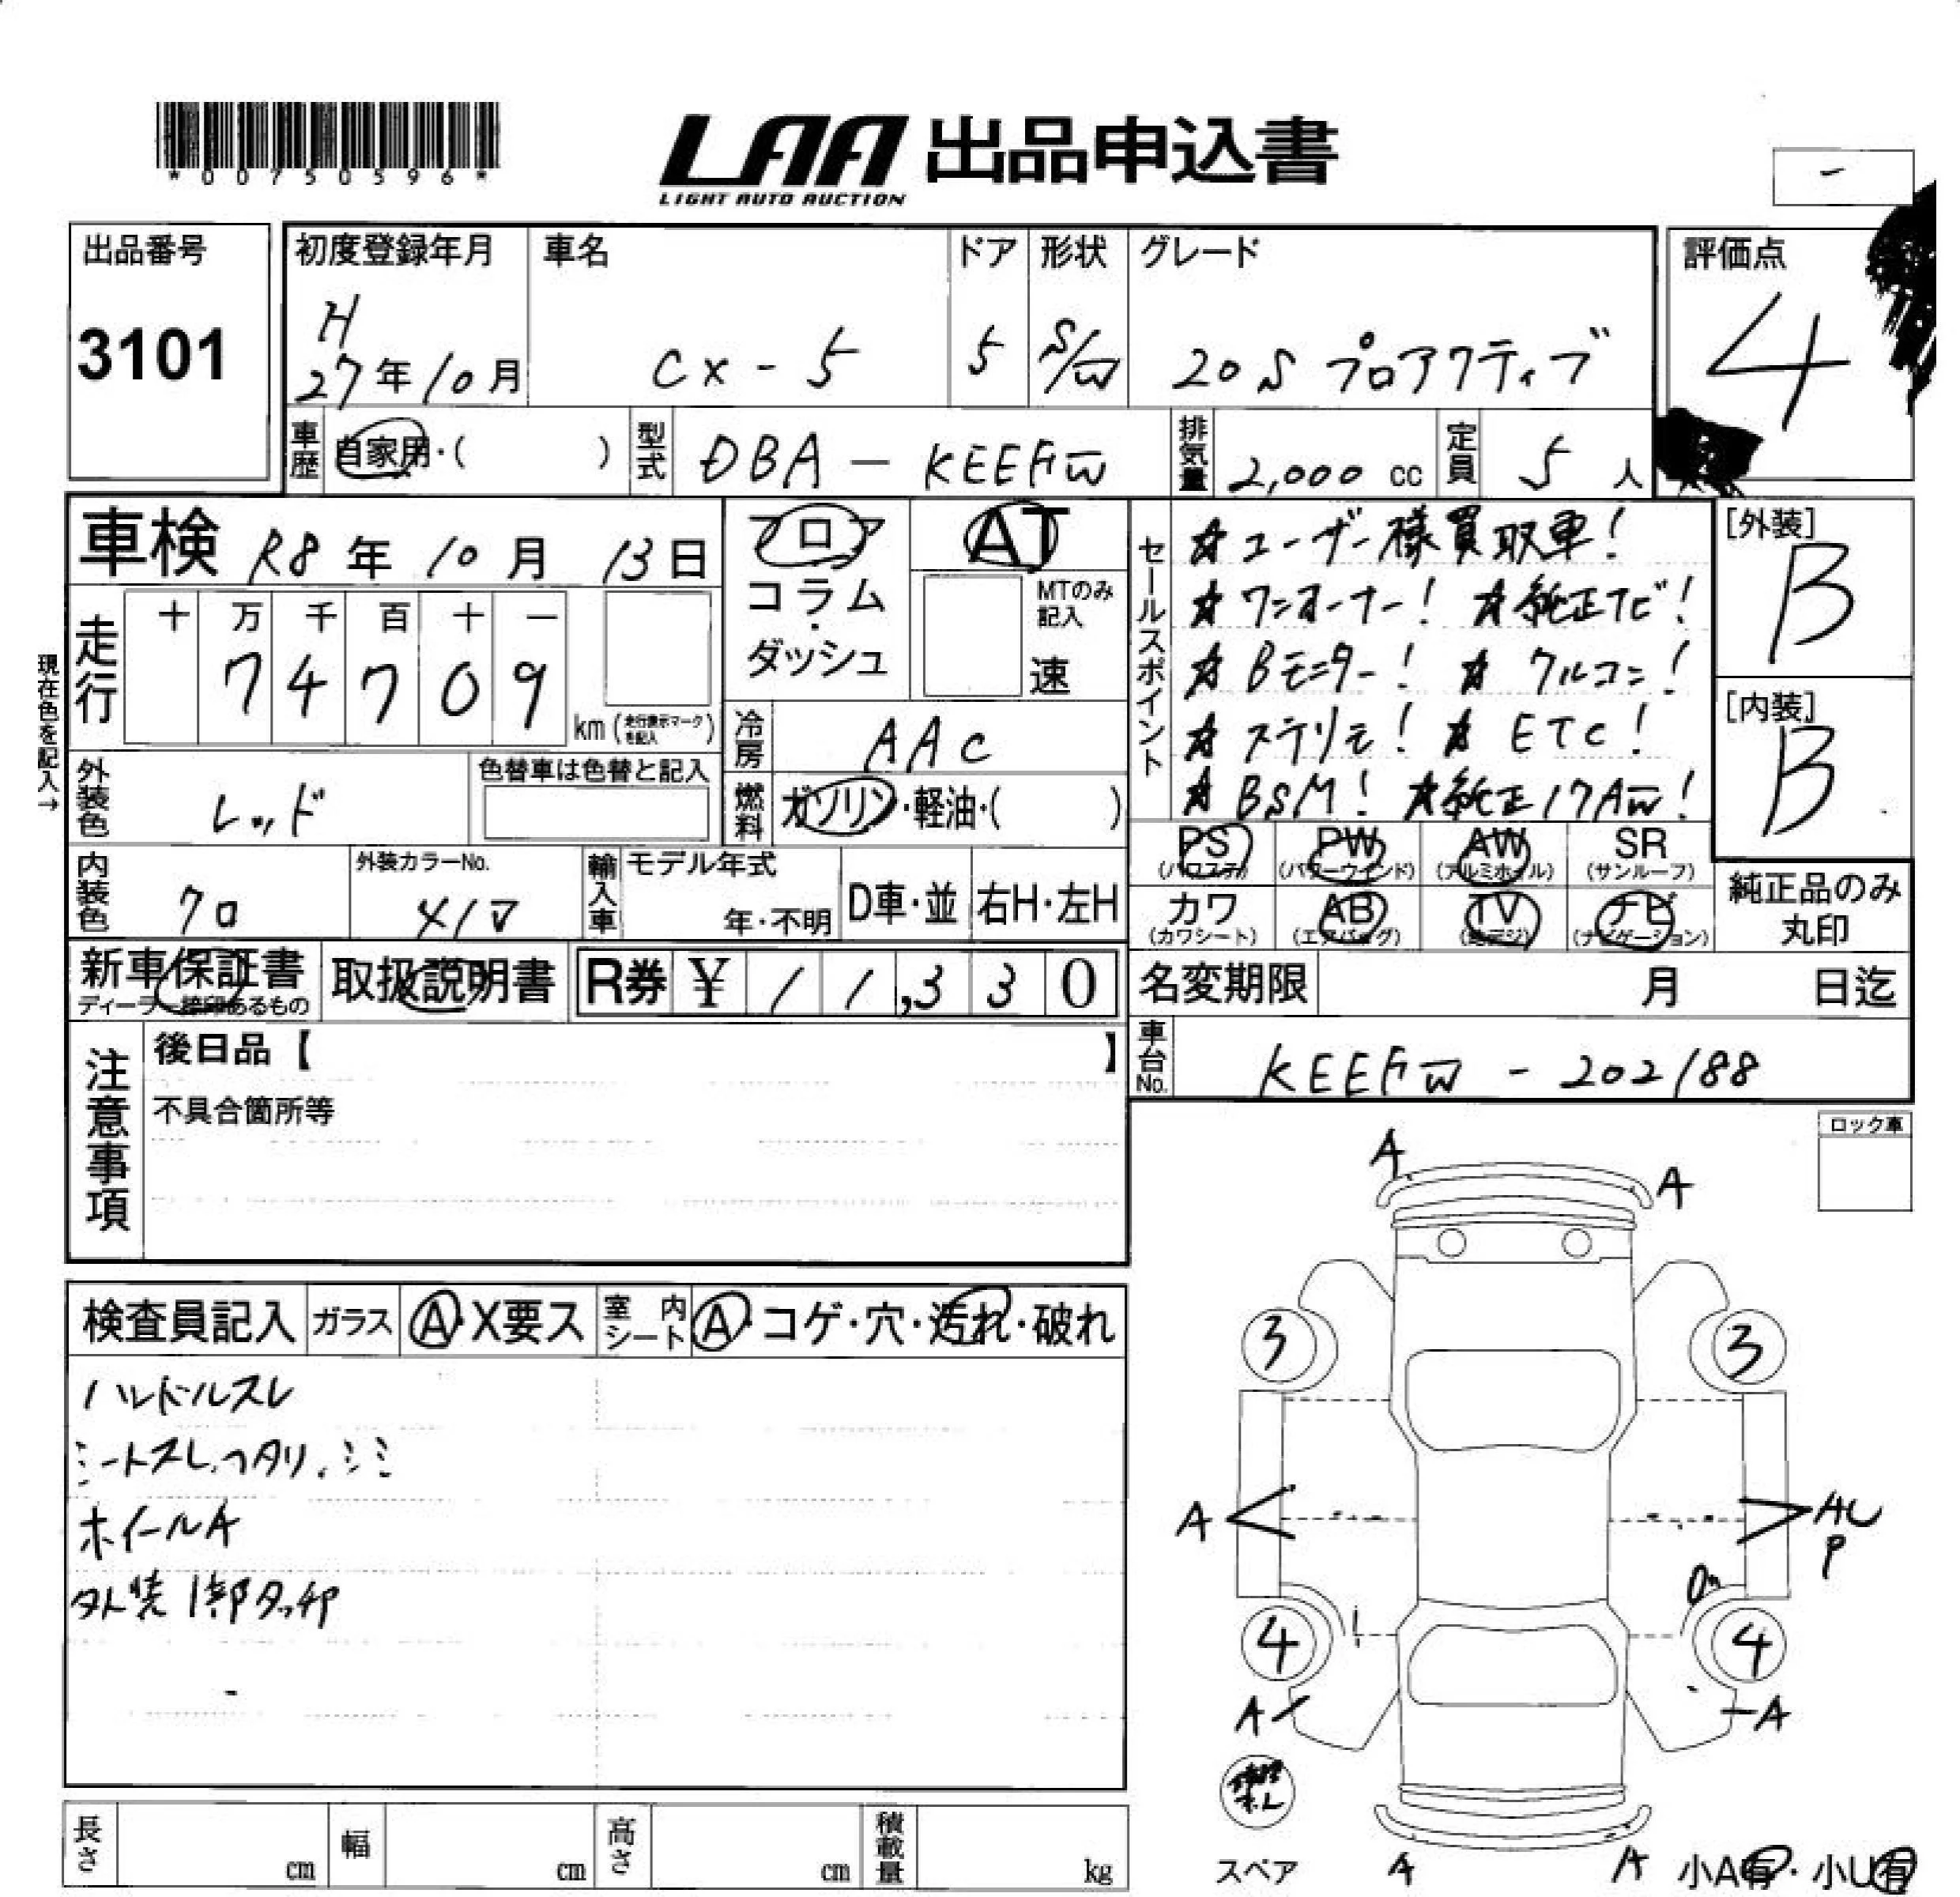 *00750596*
LAA 出品申込書
LIGHT AUTO AUCTION
-
出品番号 初度登録年月 車名 ドア 形状 グレード 評価点
3101 H 27年10月 CX-5 5 S/W 20S プロアクティブ 4
車歴 自家用・( ) 型式 DBA-KEEFW 排気量 2,000 cc 定員 5 人
車検 R8年10月13日 フロア AT
コラム・ダッシュ MTのみ記入 速
現在色を記入→
走行 十 万 千 百 十 一
74709 km (走行表示マークを記入)
冷房 AAC
外装色 レッド 色替車は色替と記入
燃料 ガソリン・軽油・( )
内装色 クロ 外装カラーNo. 輸入車 モデル年式 年・不明 D車・並 右H・左H
セールスポイント
☆ユーザー様買取車!
☆ワンオーナー! ☆純正ナビ!
☆Bモニター! ☆クルコン!
☆ステリモ! ☆ETC!
☆BSM! ☆純正17AW!
[外装] B
[内装] B
PS (パワステ) PW (パワーウインド) AW (アルミホイル) SR (サンルーフ)
カワ (カワシート) AB (エアバッグ) TV (地デジ) ナビ (ナビゲーション)
純正品のみ丸印
新車保証書 取扱説明書 R券 ¥ 11,330
ディーラー捺印あるもの
名変期限 月 日迄
車台No. KEEFW-202188
注意事項
後日品【 】
不具合箇所等
ロック車
検査員記入 ガラス A・X要ス 室内シート A・コゲ・穴・汚れ・破れ
ハンドルスレ
シートスレ.ヘタリ.シミ
ホイールA
外装1部タッチP
A A
3 3
A AU
P
4 4
A A
スペア
A A
小A有・小U有
長さ cm 幅 cm 高さ cm 積載量 kg